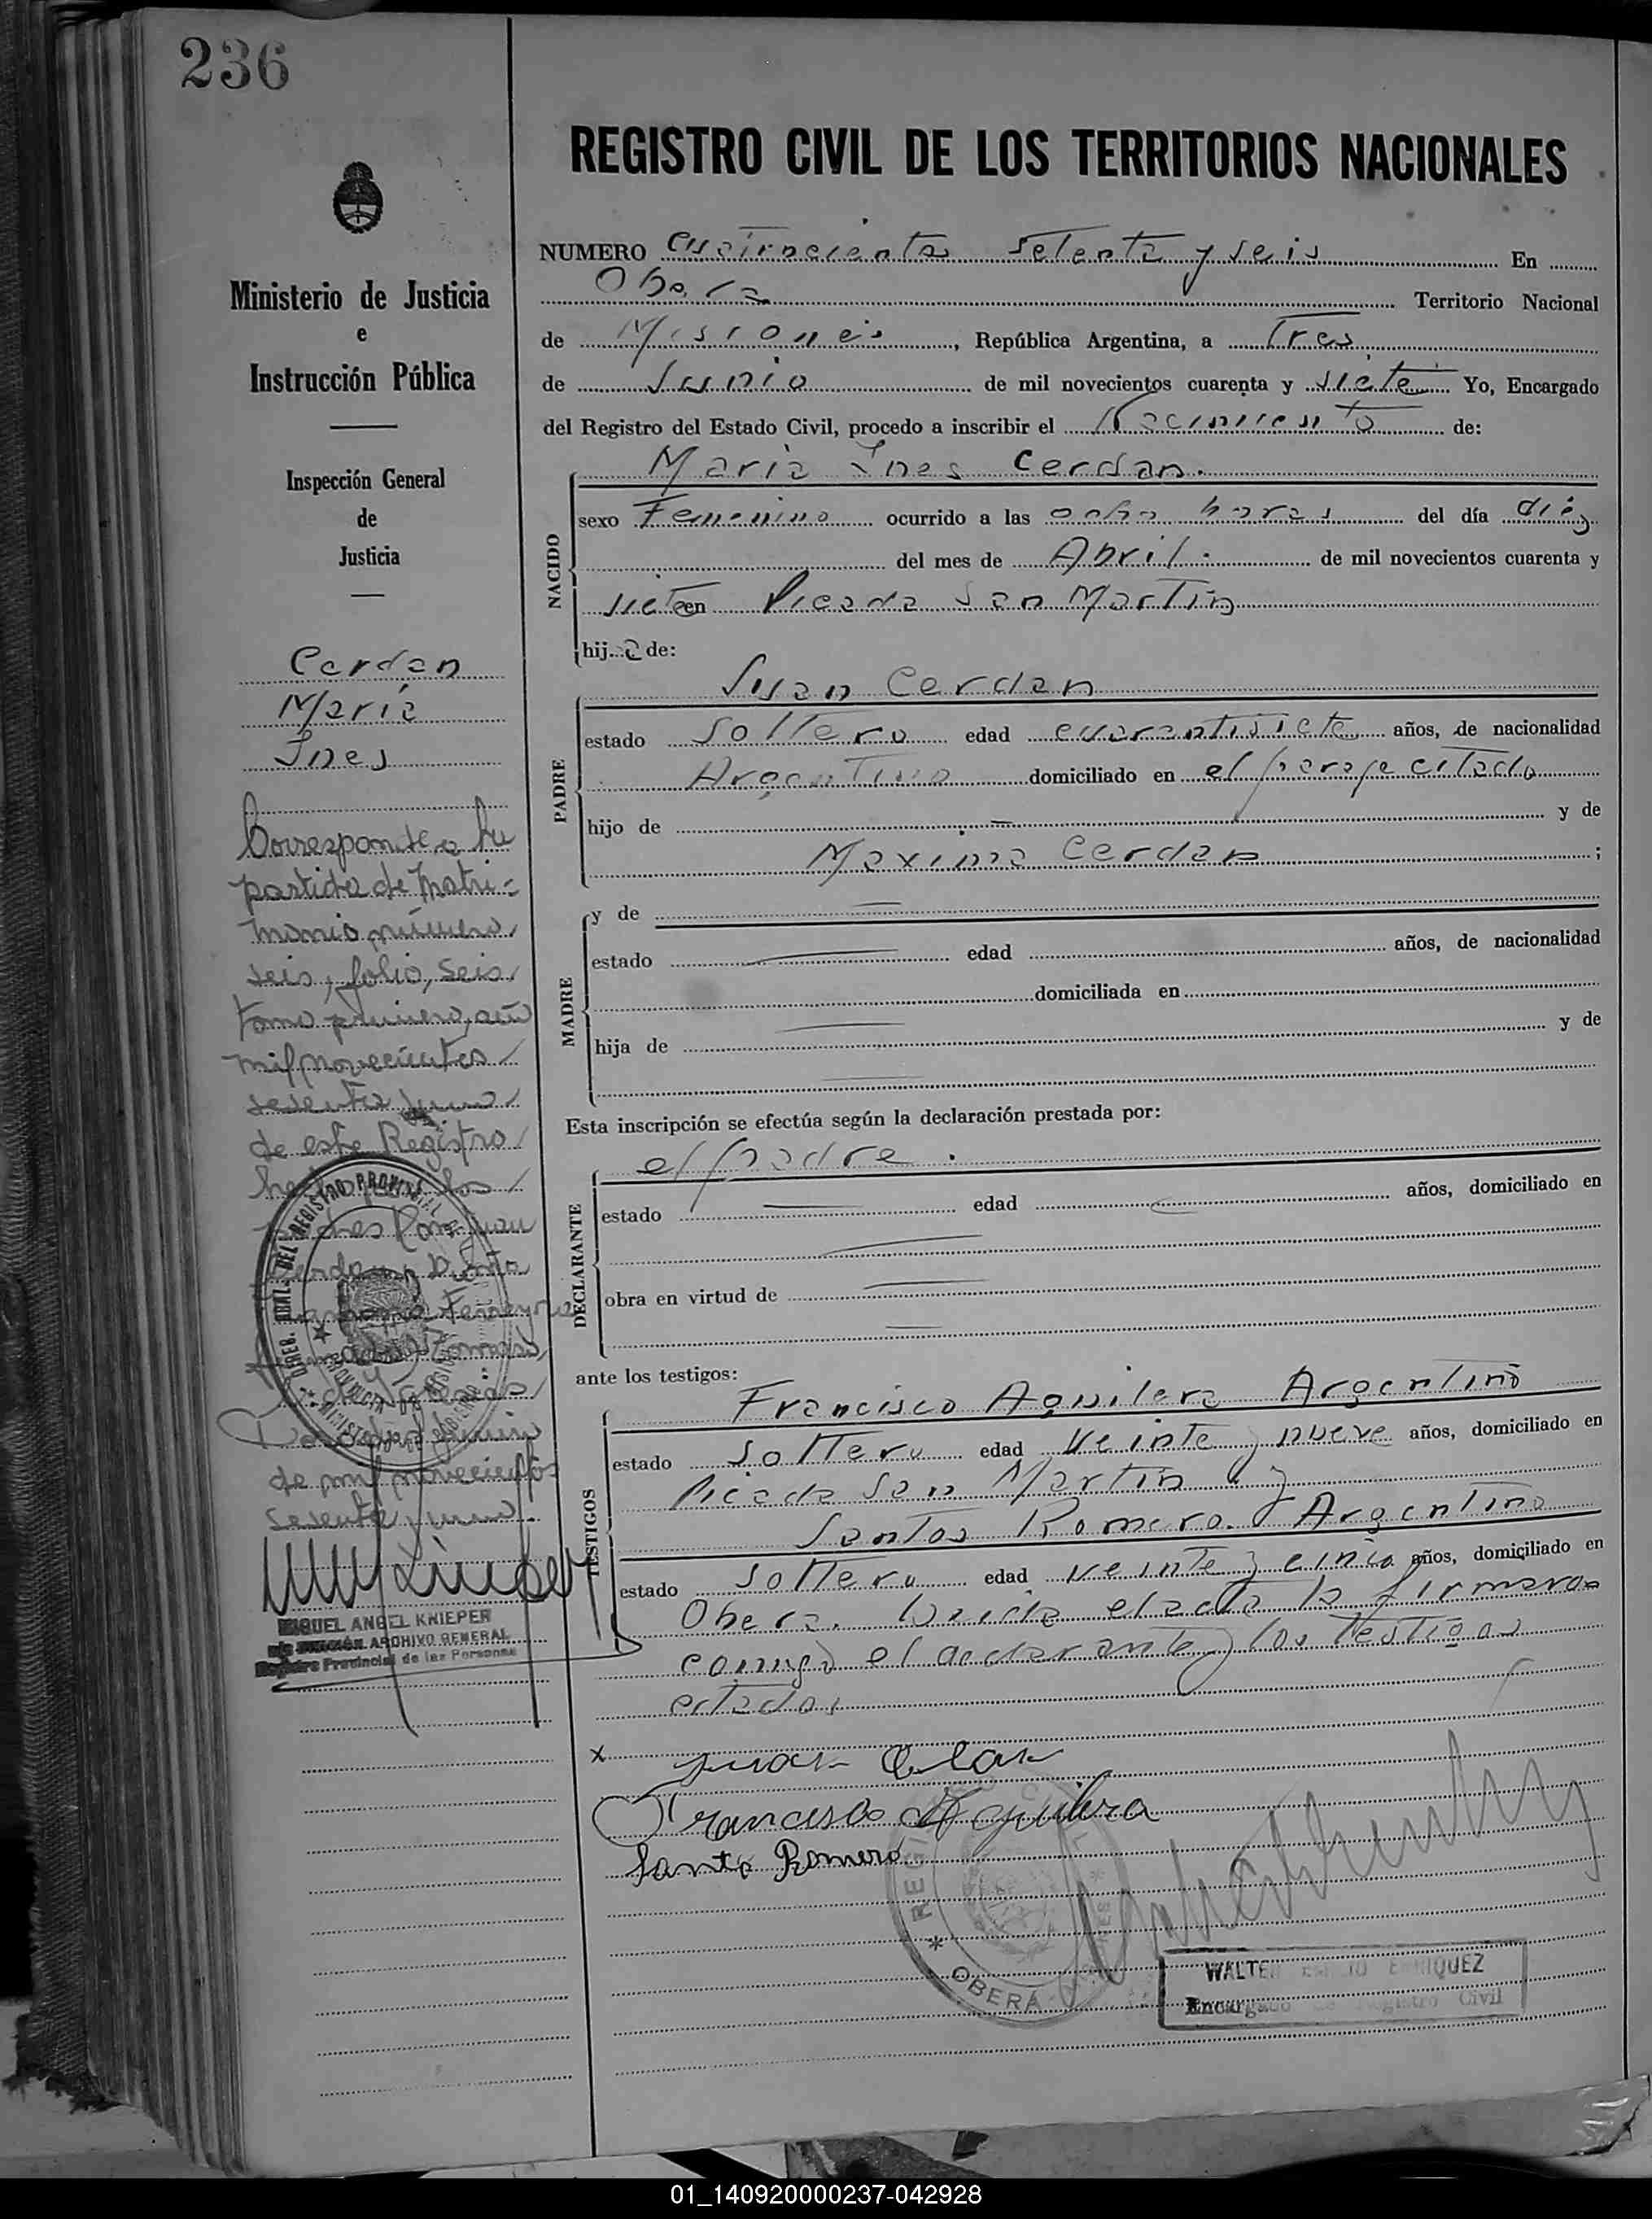 236
REGISTRO CIVIL DE LOS TERRITORIOS NACIONALES
Ministerio de Justicia
e
Instrucción Pública
Inspección General
de
Justicia
Cerdan
Maria
Ines
Corresponde a su
partida de Matri-
monio número
seis, folio, seis
tomo primero, año
mil novecientos
sesenta y uno
de este Registro
de mil novecientos
sesenta y uno.
MIGUEL ANGEL KNIEPER
ARCHIVO GENERAL
Registro Provincial de las Personas
NUMERO cuatrocientos setenta y seis En
Obera Territorio Nacional
de Misiones, República Argentina, a Tres
de Junio de mil novecientos cuarenta y siete Yo, Encargado
del Registro del Estado Civil, procedo a inscribir el Nacimiento de:
NACIDO
Maria Ines Cerdan.
sexo Femenino ocurrido a las ocho horas del día diez
del mes de Abril. de mil novecientos cuarenta y
siete en Picada San Martin
hija de:
PADRE
Juan Cerdan
estado soltero edad cuarentisiete años, de nacionalidad
Argentino domiciliado en el paraje citado
hijo de — y de
Maxima Cerdan ;
MADRE
y de —
estado — edad años, de nacionalidad
domiciliada en
hija de y de
Esta inscripción se efectúa según la declaración prestada por:
DECLARANTE
el padre.
estado — edad años, domiciliado en
obra en virtud de —
ante los testigos:
TESTIGOS
Francisco Aguilera Argentino
estado soltero edad veinte y nueve años, domiciliado en
Picada San Martin y
Santos Romero. Argentino
estado soltero edad veinte y cinco años, domiciliado en
Obera. Leida el acta la firmaron
conmigo el declarante y los testigos
citados
x Juan
Francisco Aguilera
Santo Romero
REGI
OBERA
WALTER ENRIQUEZ
Encargado de Registro Civil
01_140920000237-042928